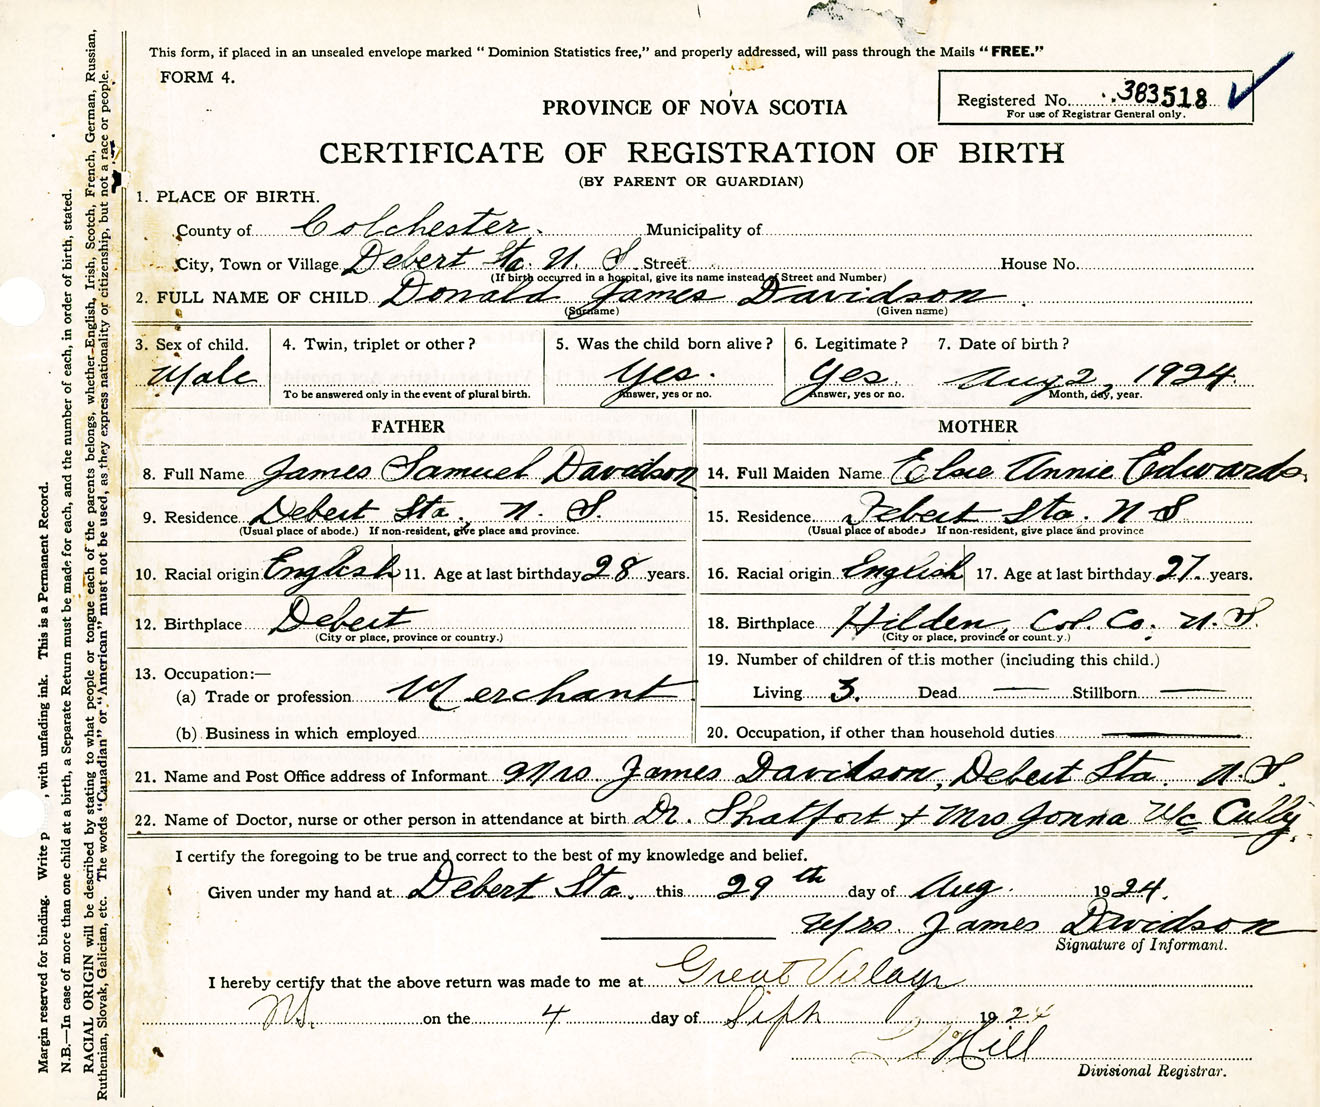 This form, if placed in an unsealed envelope marked "Dominion Statistics free," and properly addressed, will pass through the Mails "FREE."
FORM 4.
Registered No. 383518
For use of Registrar General only.
PROVINCE OF NOVA SCOTIA
CERTIFICATE OF REGISTRATION OF BIRTH
(BY PARENT OR GUARDIAN)
1. PLACE OF BIRTH.
County of Colchester. Municipality of
City, Town or Village Debert Sta. N. S. Street House No.
(If birth occurred in a hospital, give its name instead of Street and Number)
2. FULL NAME OF CHILD Donald James Davidson
(Surname) (Given name)
3. Sex of child. 4. Twin, triplet or other? 5. Was the child born alive? 6. Legitimate? 7. Date of birth?
Male Yes. Yes. Aug 2, 1924.
To be answered only in the event of plural birth. Answer, yes or no. Answer, yes or no. Month, day, year.
FATHER MOTHER
8. Full Name James Samuel Davidson 14. Full Maiden Name Elsie Annie Edwards.
9. Residence Debert Sta., N. S. 15. Residence Debert Sta. N S
(Usual place of abode.) If non-resident, give place and province. (Usual place of abode. If non-resident, give place and province
10. Racial origin English 11. Age at last birthday 28 years. 16. Racial origin English 17. Age at last birthday 27 years.
12. Birthplace Debert 18. Birthplace Hilden, Col. Co. N. S.
(City or place, province or country.) (City or place, province or country.)
19. Number of children of this mother (including this child.)
13. Occupation:—
(a) Trade or profession Merchant Living 3. Dead — Stillborn —
(b) Business in which employed 20. Occupation, if other than household duties —
21. Name and Post Office address of Informant Mrs James Davidson, Debert Sta. N. S.
22. Name of Doctor, nurse or other person in attendance at birth Dr. Shatfort + Mrs Jonna Mc Cully.
I certify the foregoing to be true and correct to the best of my knowledge and belief.
Given under my hand at Debert Sta. this 29th day of Aug. 1924.
Mrs. James Davidson
Signature of Informant.
I hereby certify that the above return was made to me at Great Village
NS. on the 4 day of Seph 1924
Hill
Divisional Registrar.
Margin reserved for binding. Write p , with unfading ink. This is a Permanent Record.
N.B.—In case of more than one child at a birth, a Separate Return must be made for each, and the number of each, in order of birth, stated.
RACIAL ORIGIN will be described by stating to what people or tongue each of the parents belongs, whether English, Irish, Scotch, French, German, Russian,
Ruthenian, Slovak, Galician, etc. The words "Canadian" or "American" must not be used, as they express nationality or citizenship, but not a race or people.